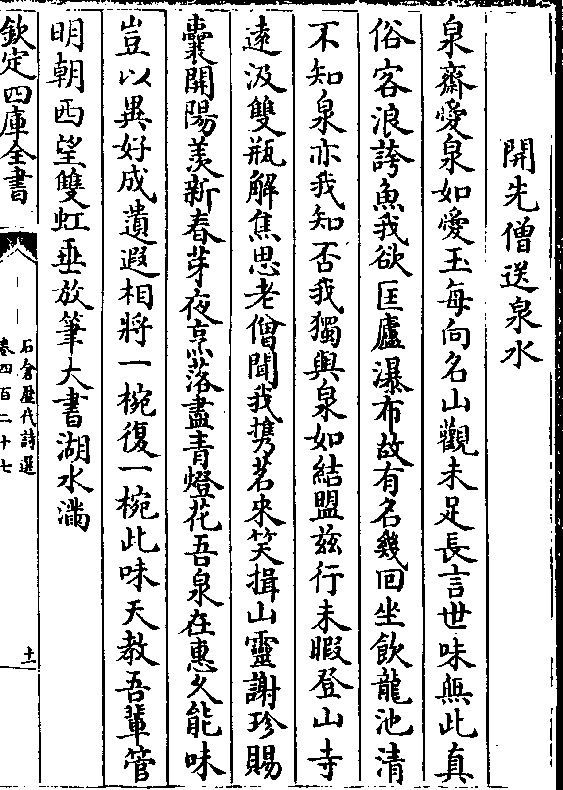 開先僧送泉水
泉齋愛泉如愛玉每向名山觀未足長言世味無此真
俗客浪誇魚我欲匡廬瀑布故有名幾回坐飲龍池清
不知泉亦我知否我獨與泉如結盟兹行未暇登山寺
逺汲雙瓶解焦思老僧聞我携茗來笑揖山靈謝珍賜
囊開陽羡新春芽夜烹落盡青燈花吾泉在惠久能味
豈以異好成遺遐相將一椀復一椀此味天教吾輩管
明朝西望雙虹垂放筆大書湖水滿
欽定四庫全書
石倉歴代詩選
卷四百二十七
十一